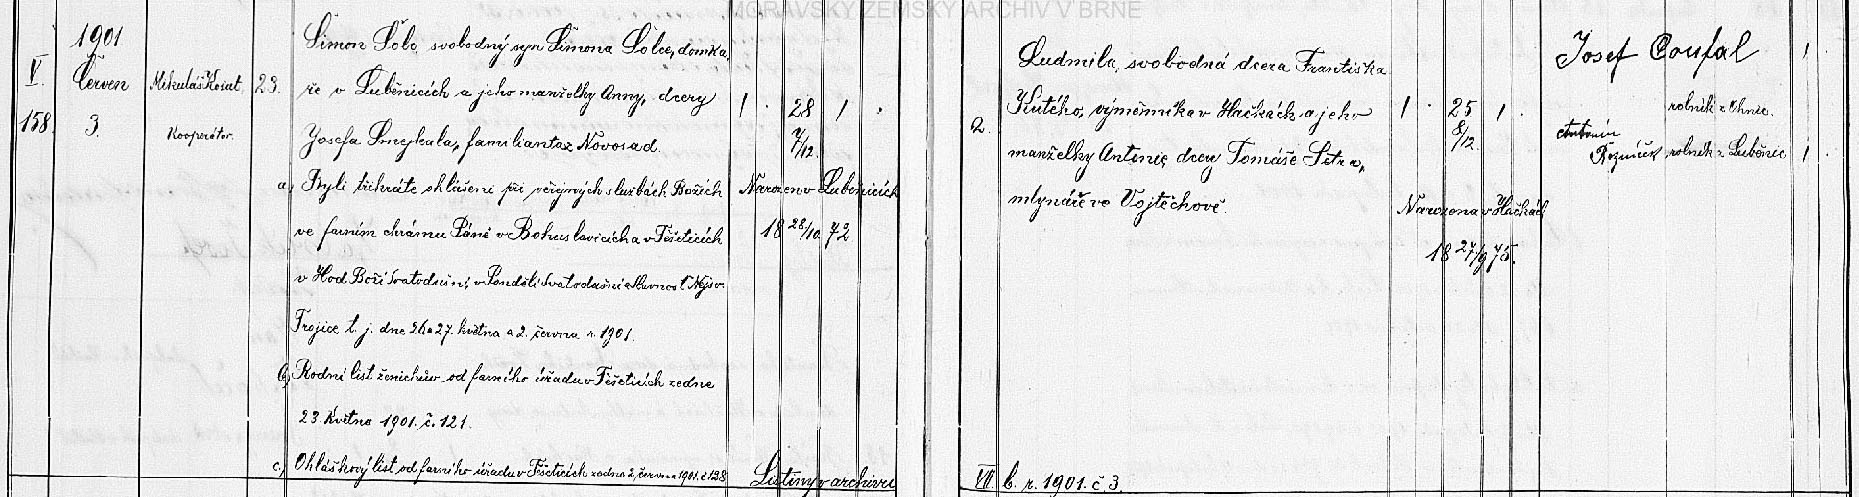 MORAVSKÝ ZEMSKÝ ARCHIV V BRNĚ
1901
V.
158.
Červen
3.
Mikuláš Kosat,
Kooperátor.
23.
Šimon Šolc, svobodný syn Šimona Šolce, domka-
ře v Luběnicích a jeho manželky Anny, dcery
Josefa Smejkala, familianta z Novosad.
a, Byli třikráte ohlášeni při veřejných službách Božích
ve farním chrámu Páně v Bohuslavicích a v Těšeticích
v Hod Boží Svatodušní, v Pondělí Svatodušní a Slavnost Nejsv.
Trojice t. j. dne 26. a 27. května a 2. června r. 1901.
b, Rodní list ženichův od farního úřadu v Těšeticích ze dne
23. května 1901. č. 121.
c, Ohláškový list od farního úřadu v Těšeticích ze dne 2. června 1901. č. 128
1 . 28 1 .
7/12.
Narozen v Luběnicích
18 28/10 72
Listiny v archivu
2.
Ludmila, svobodná dcera Františka
Kutého, výměnníka v Hačkách a jeho
manželky Antonie, dcery Tomáše Sitra,
mlynáře ve Vojtěchově.
1 . 25 1 .
8/12.
Narozena v Hačkách
18 27/9 75.
Josef Coufal
rolník z
1
Antonín
rolník z Luběnic
1
VII b. r. 1901. č. 3.